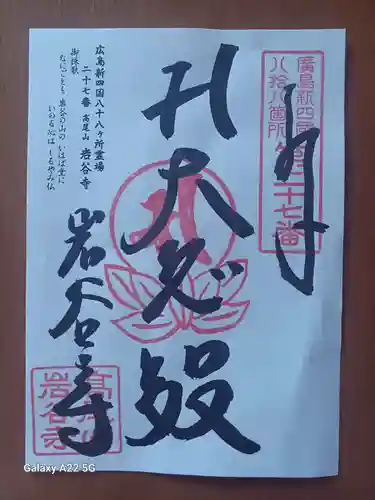 奉拝
廣島新四國
八拾八箇所
第二十七番
大悲殿
岩谷寺
広島新四国八十八ヶ所霊場
二十七番 高尾山 岩谷寺
御詠歌
なにごとも 岩谷の山の いはば堂に
いのる心は しるやみ仏
岩谷寺
Galaxy A22 5G